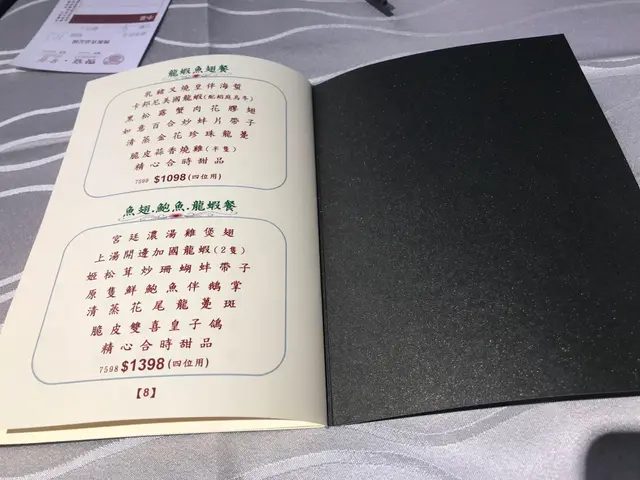 龍蝦魚翅餐
乳豬叉燒皇伴海蜇
卡邦尼美國龍蝦(配稻庭烏冬)
黑松露蟹肉花膠翅
如意百合炒蚌片帶子
清蒸金花珍珠龍躉
脆皮蒜香燒雞(半隻)
精心合時甜品
7599 $1098 (四位用)
魚翅.鮑魚.龍蝦餐
宮廷濃湯雞煲翅
上湯開邊加國龍蝦(2隻)
姬松茸炒珊蝴蚌帶子
原隻鮮鮑魚伴鵝掌
清蒸花尾龍躉斑
脆皮雙喜皇子鴿
精心合時甜品
7598 $1398 (四位用)
【8】